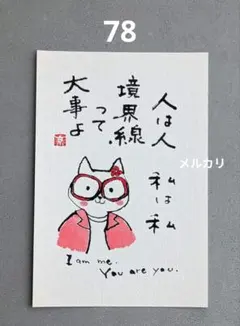 78
人は人
私は私
境界線
って
大事よ
メルカリ
I am me.
You are you.